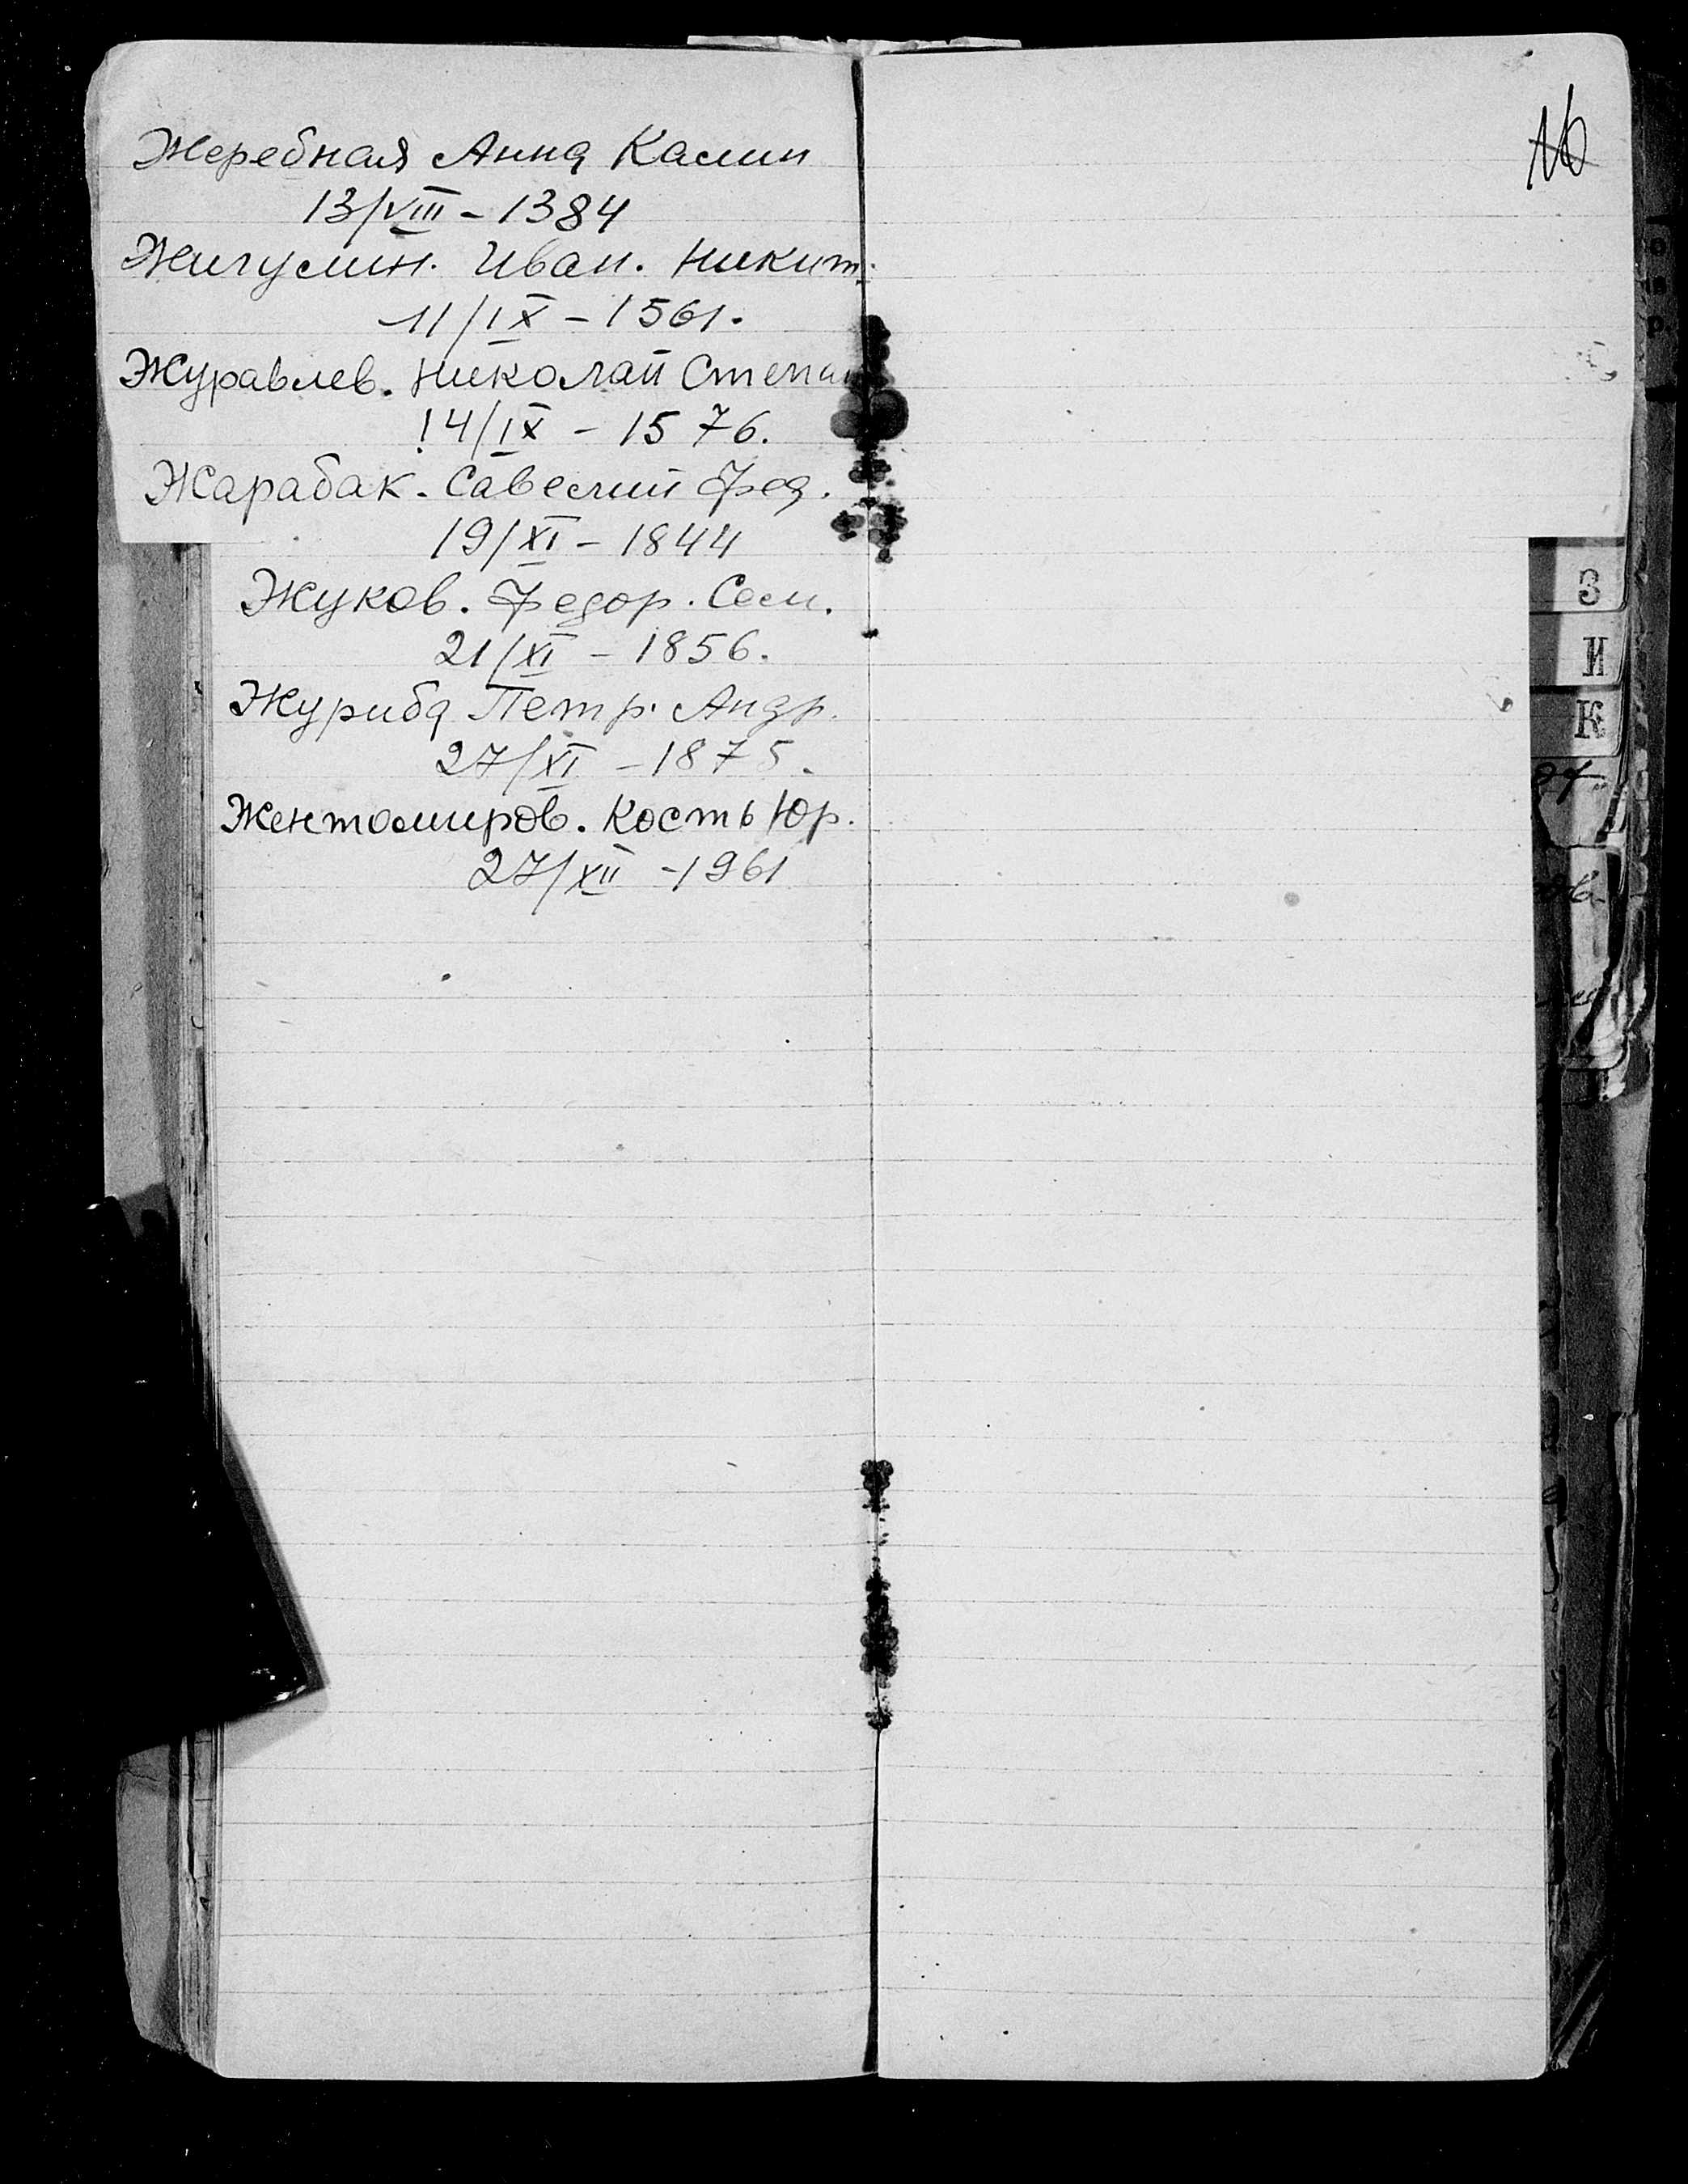 Жеребная Анна Калин
13/VIII - 1384
Жигулин. Иван. Никит.
11/IX - 1561.
Журавлев. Николай Степан
14/IX - 1576.
Жарабак. Савелий Фед.
19/XI - 1844
Жуков. Федор. Сем.
21/XI - 1856.
Журиба Петр. Андр.
27/XI - 1875.
Жентомиров. Кость Юр.
27/XII - 1961
16
З
И
К